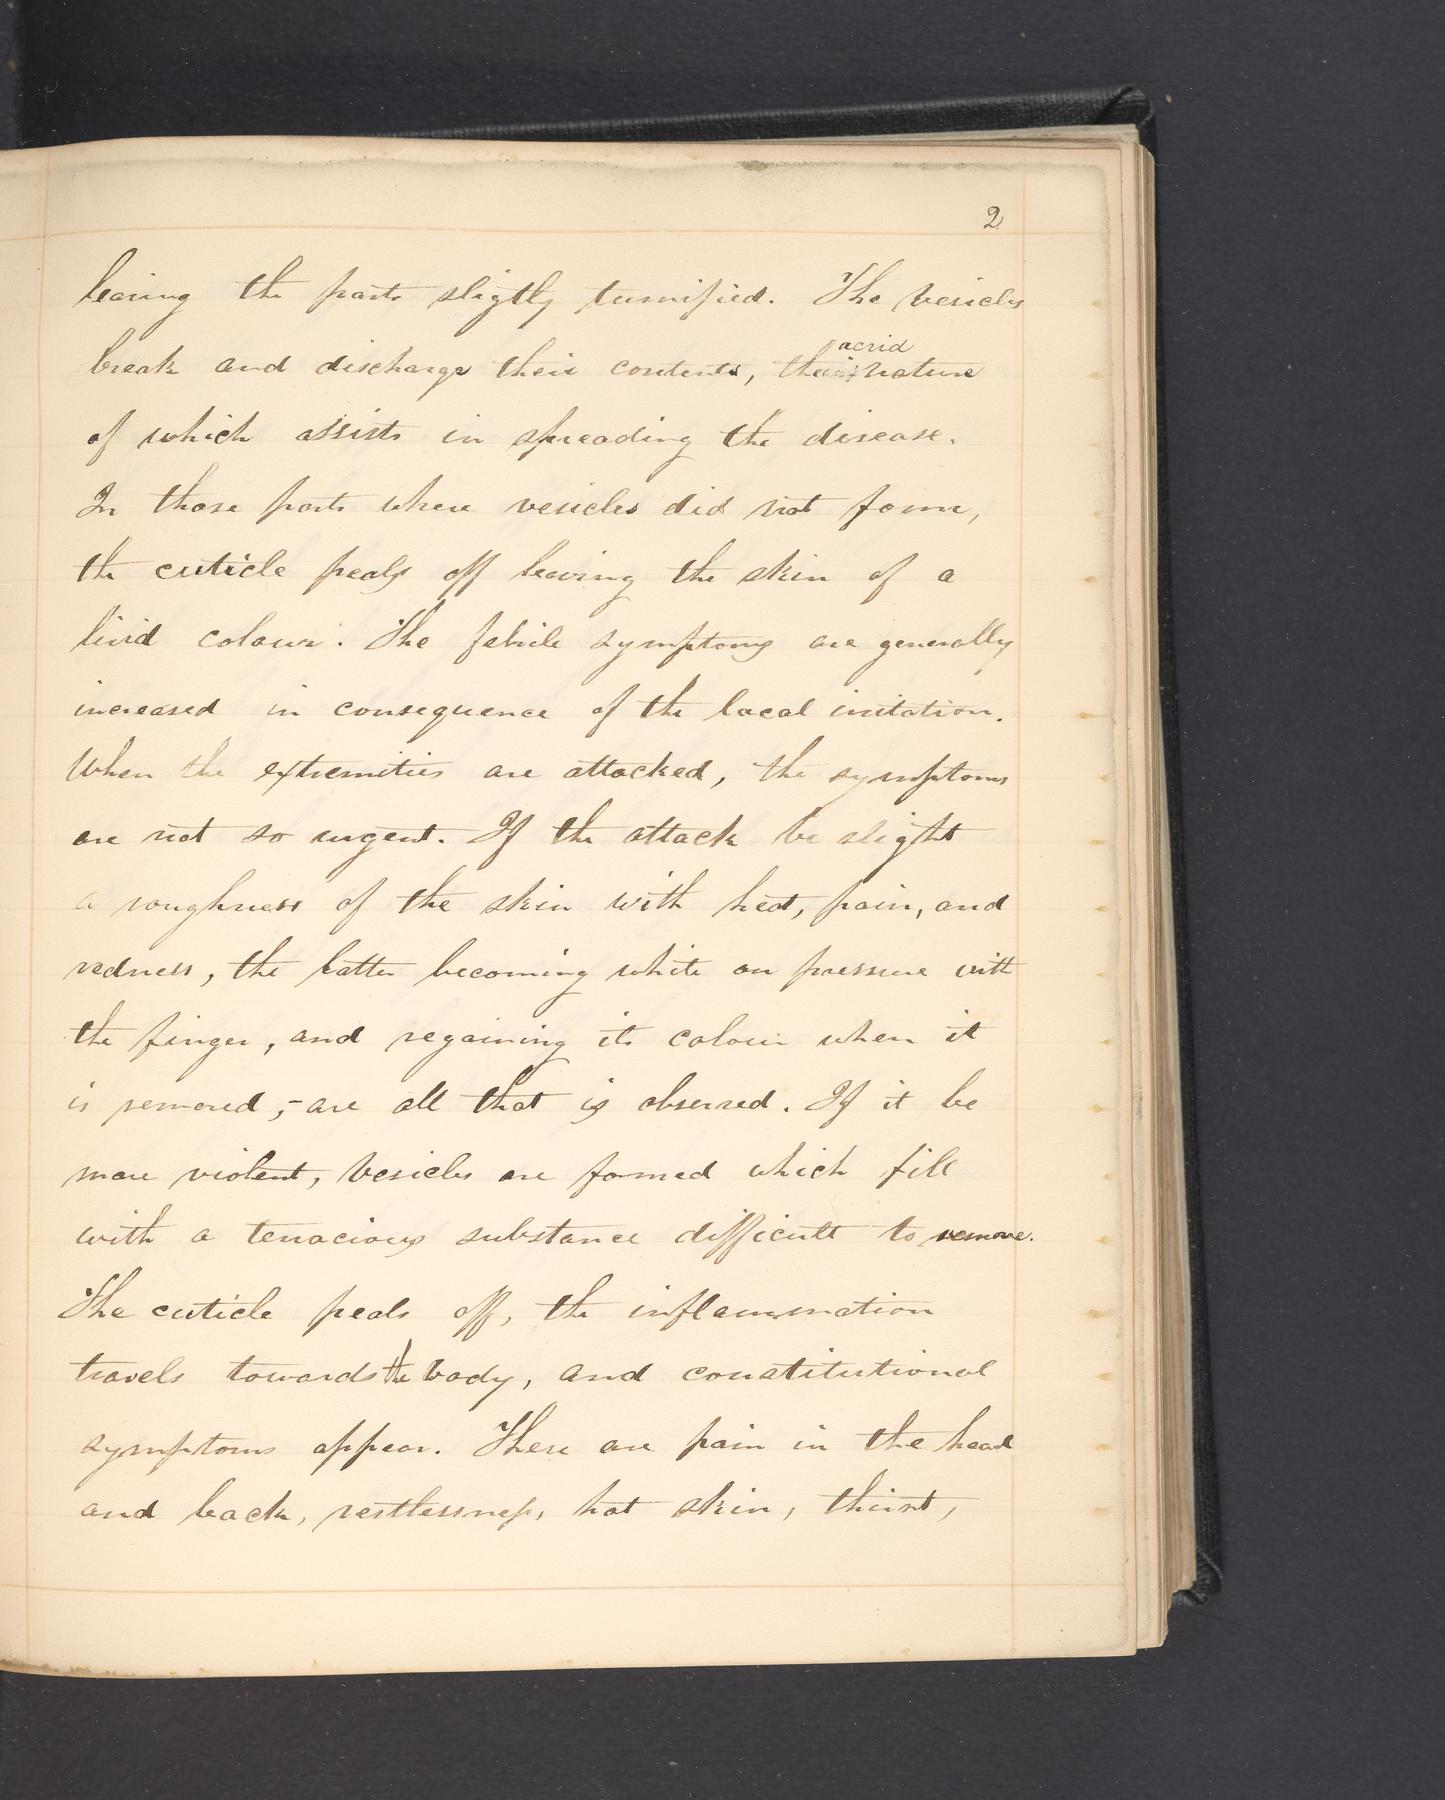 2
leaving the parts sligtly tumified. The vesicles
acrid
break and discharge their contents, the nature
of which assists in spreading the disease.
In those parts where vesicles did not form,
the cuticle peals off leaving the skin of a
livid colour. The febrile symptoms are generally
increased in consequence of the local irritation.
When the extremities are attacked, the symptoms
are not so urgent. If the attack be slight
a roughness of the skin with heat, pain, and
redness, the latter becoming white on pressure with
the finger, and regaining its colour when it
is removed,- are all that is observed. If it be
more violent, vesicles are formed which fill
with a tenacious substance difficult to remove.
The cuticle peals off, the inflammation
travels towards the body, and constitutional
symptoms appear. There are pain in the head
and back, restlessness, hot skin, thirst,